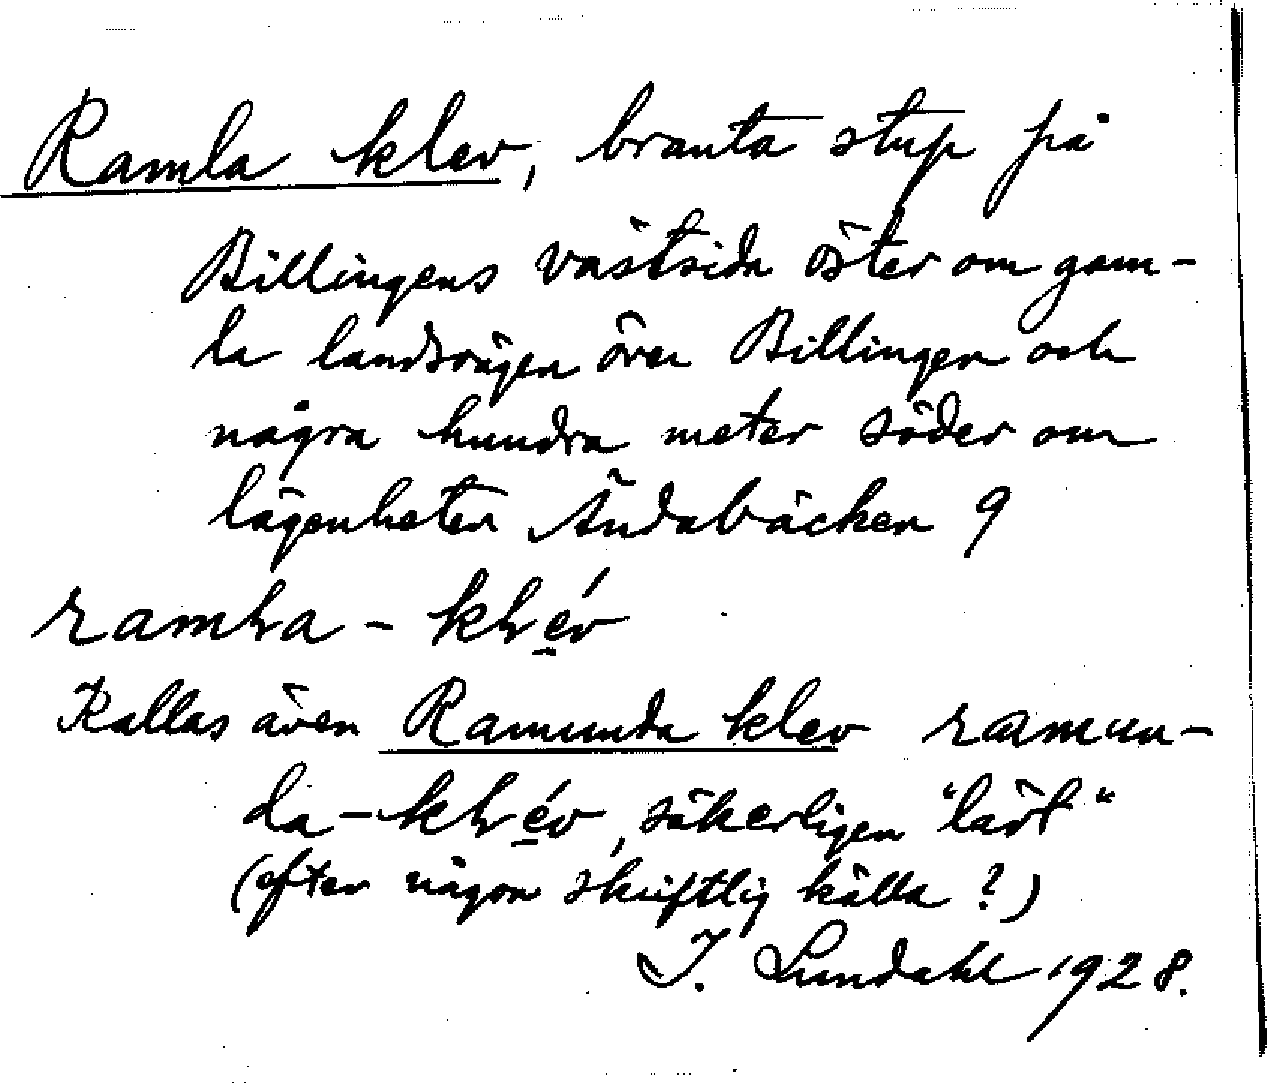 Ramla klev, branta stup på
Billingens västsida öster om gam-
la landsvägen över Billingen och
några hundra meter söder om
lägenheten Ändabäcken 9
ramla - klév
Kallas även Ramunda klev ramun-
da - klév, säkerligen "lärt"
(efter någon skriftlig källa?)
I. Lundahl 1928.